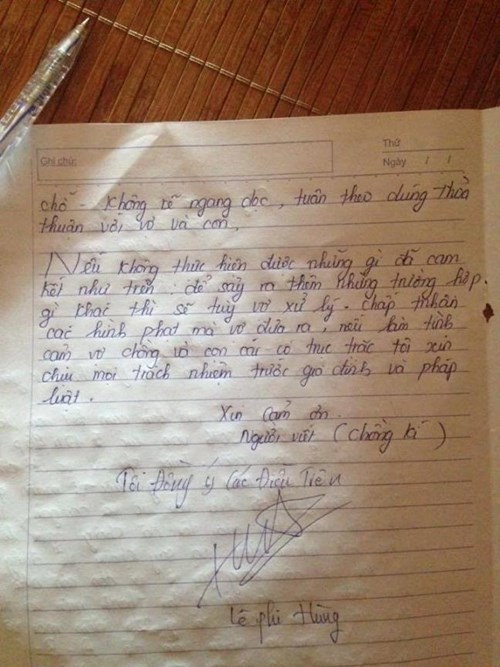 Ghi chú:
Thứ
Ngày / /
chỗ - không rẽ ngang dọc, tuân theo đúng thoả
thuận với vợ và con.
Nếu không thức hiện được những gì đã cam
kết như trên. để sảy ra thêm những trường hợp
gì khác thì sẽ tuỳ vợ xử lý. chấp nhận
các hình phạt mà vợ đưa ra, nếu làm tình
cảm vợ chồng và con cái có trục trặc tôi xin
chịu mọi trách nhiệm trước gia đình và pháp
luật.
Xin cảm ơn.
Người viết (chồng kí)
Tôi Đồng ý Các Điều Trên
Lê phi Hùng